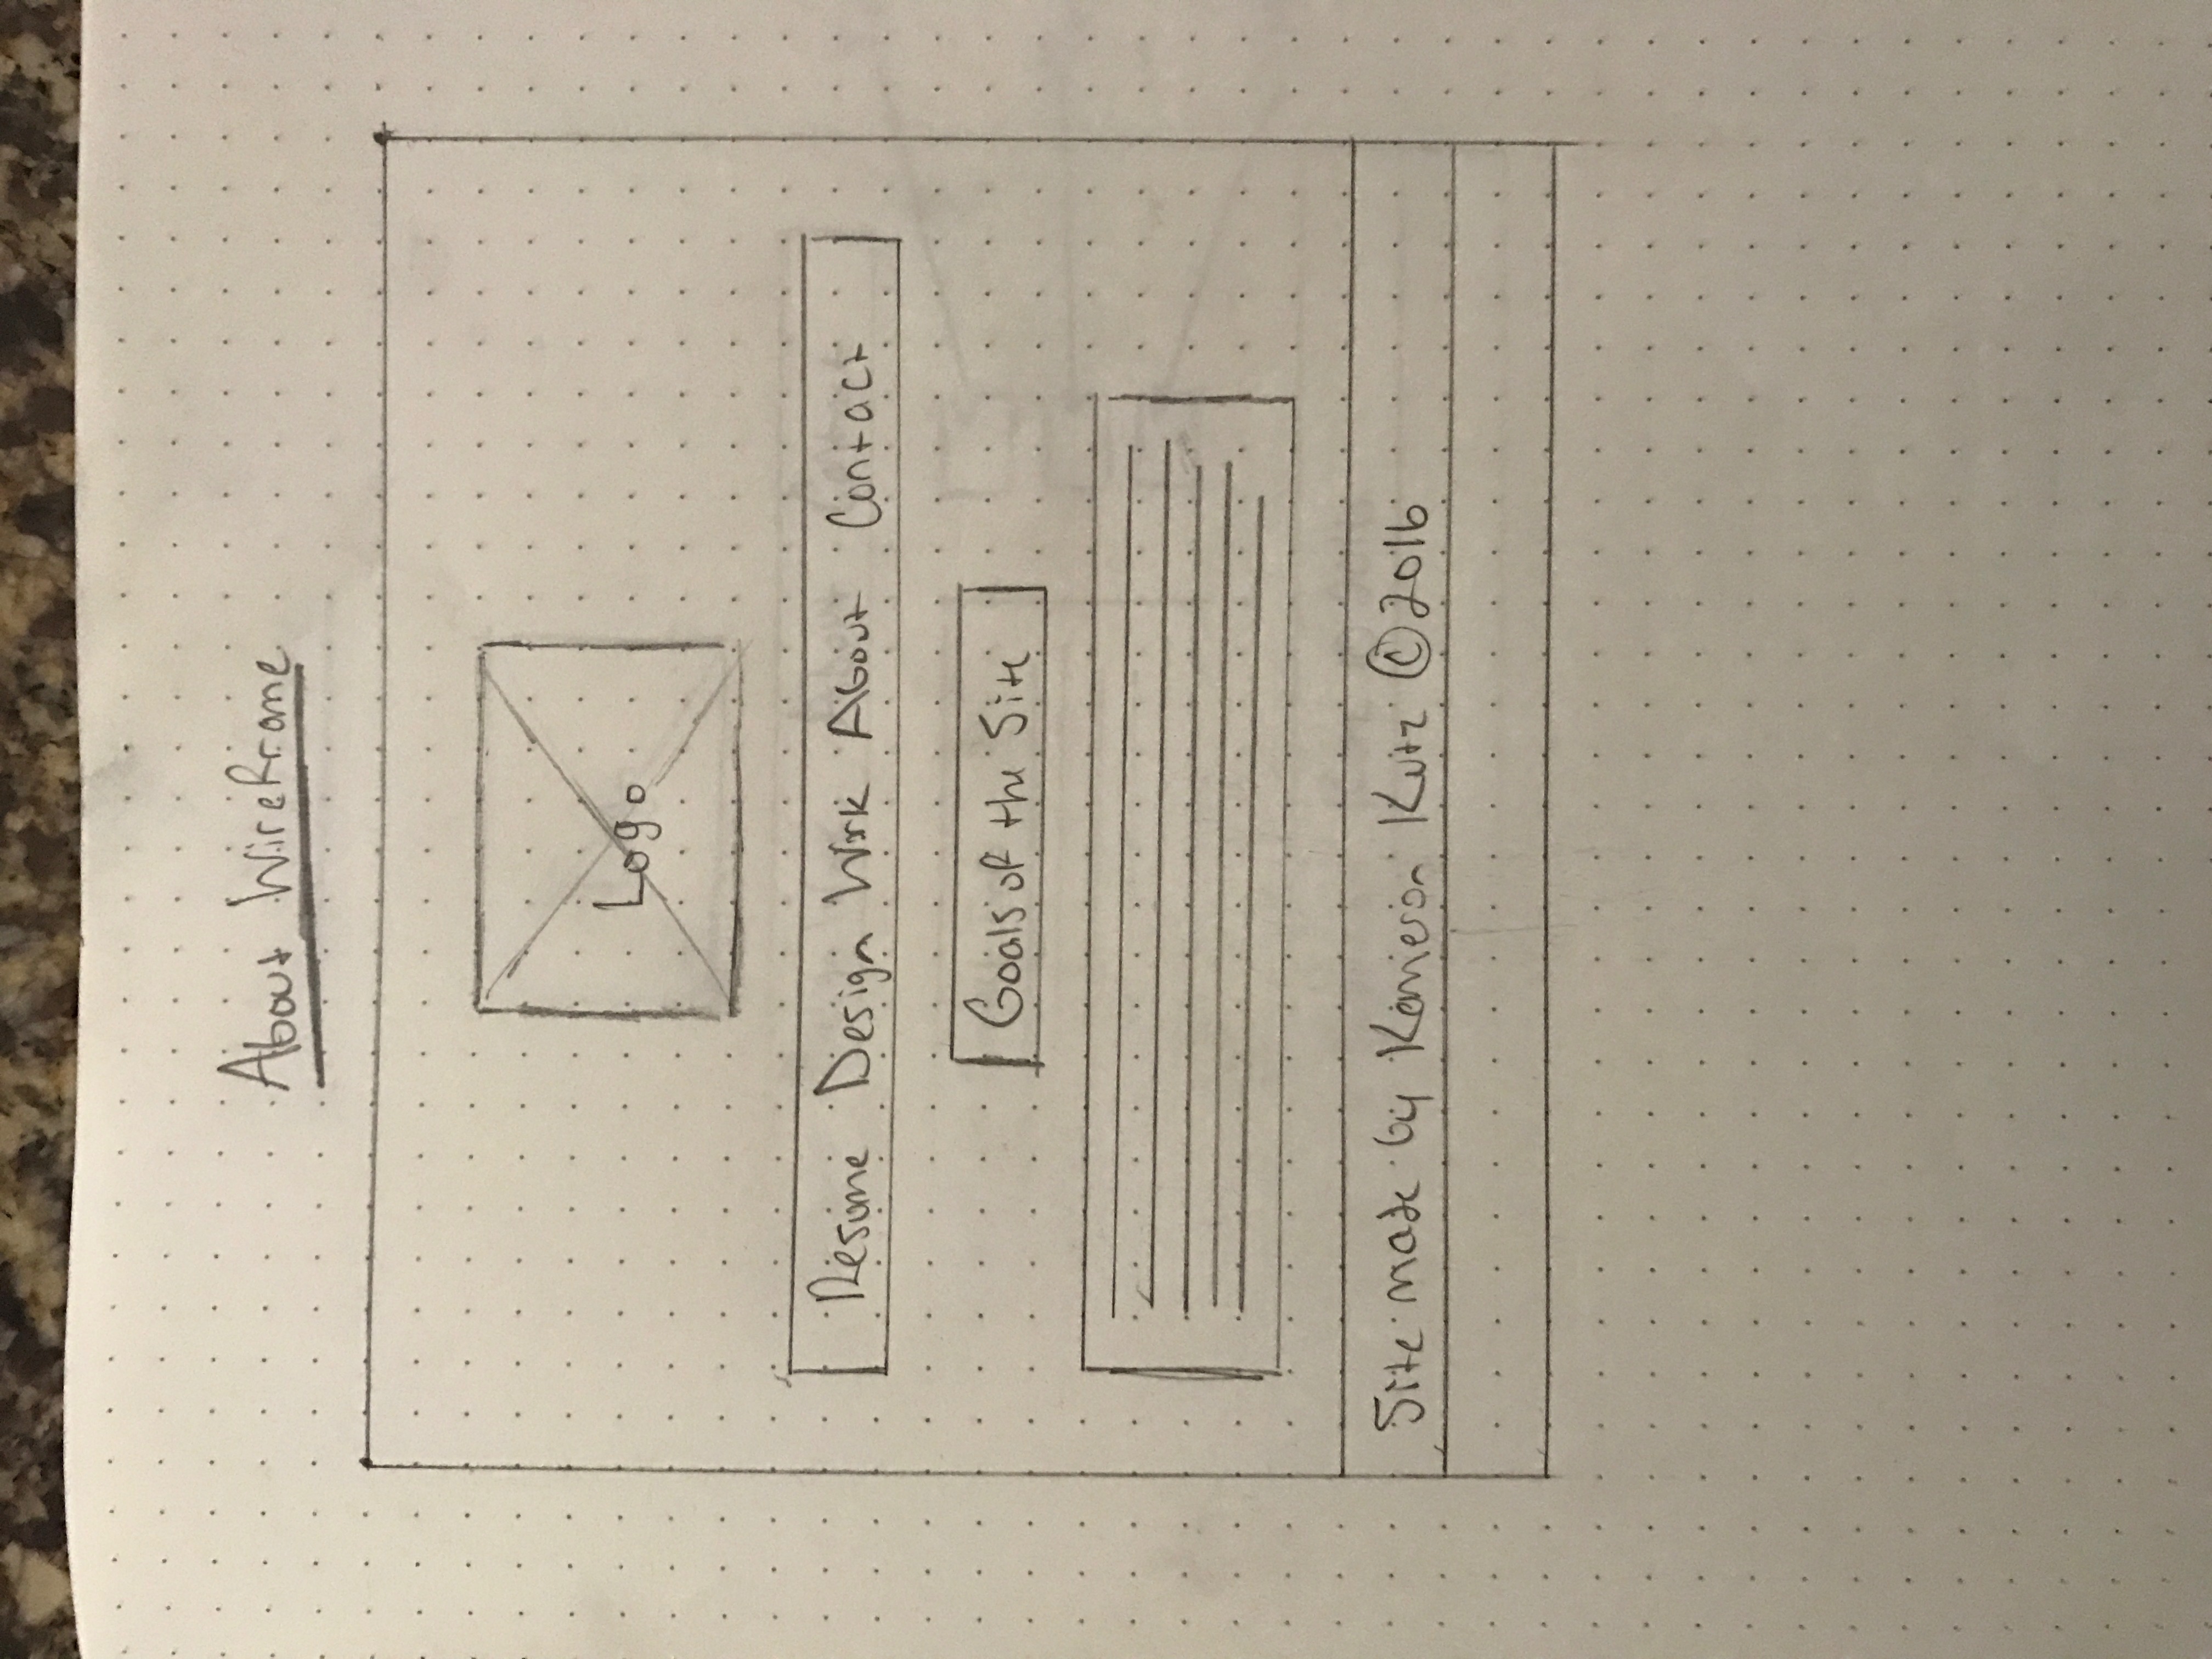 About Wireframe
Logo
Resume Design Work About Contact
Goals of the Site
Site made by Kameron Kutz ©2016